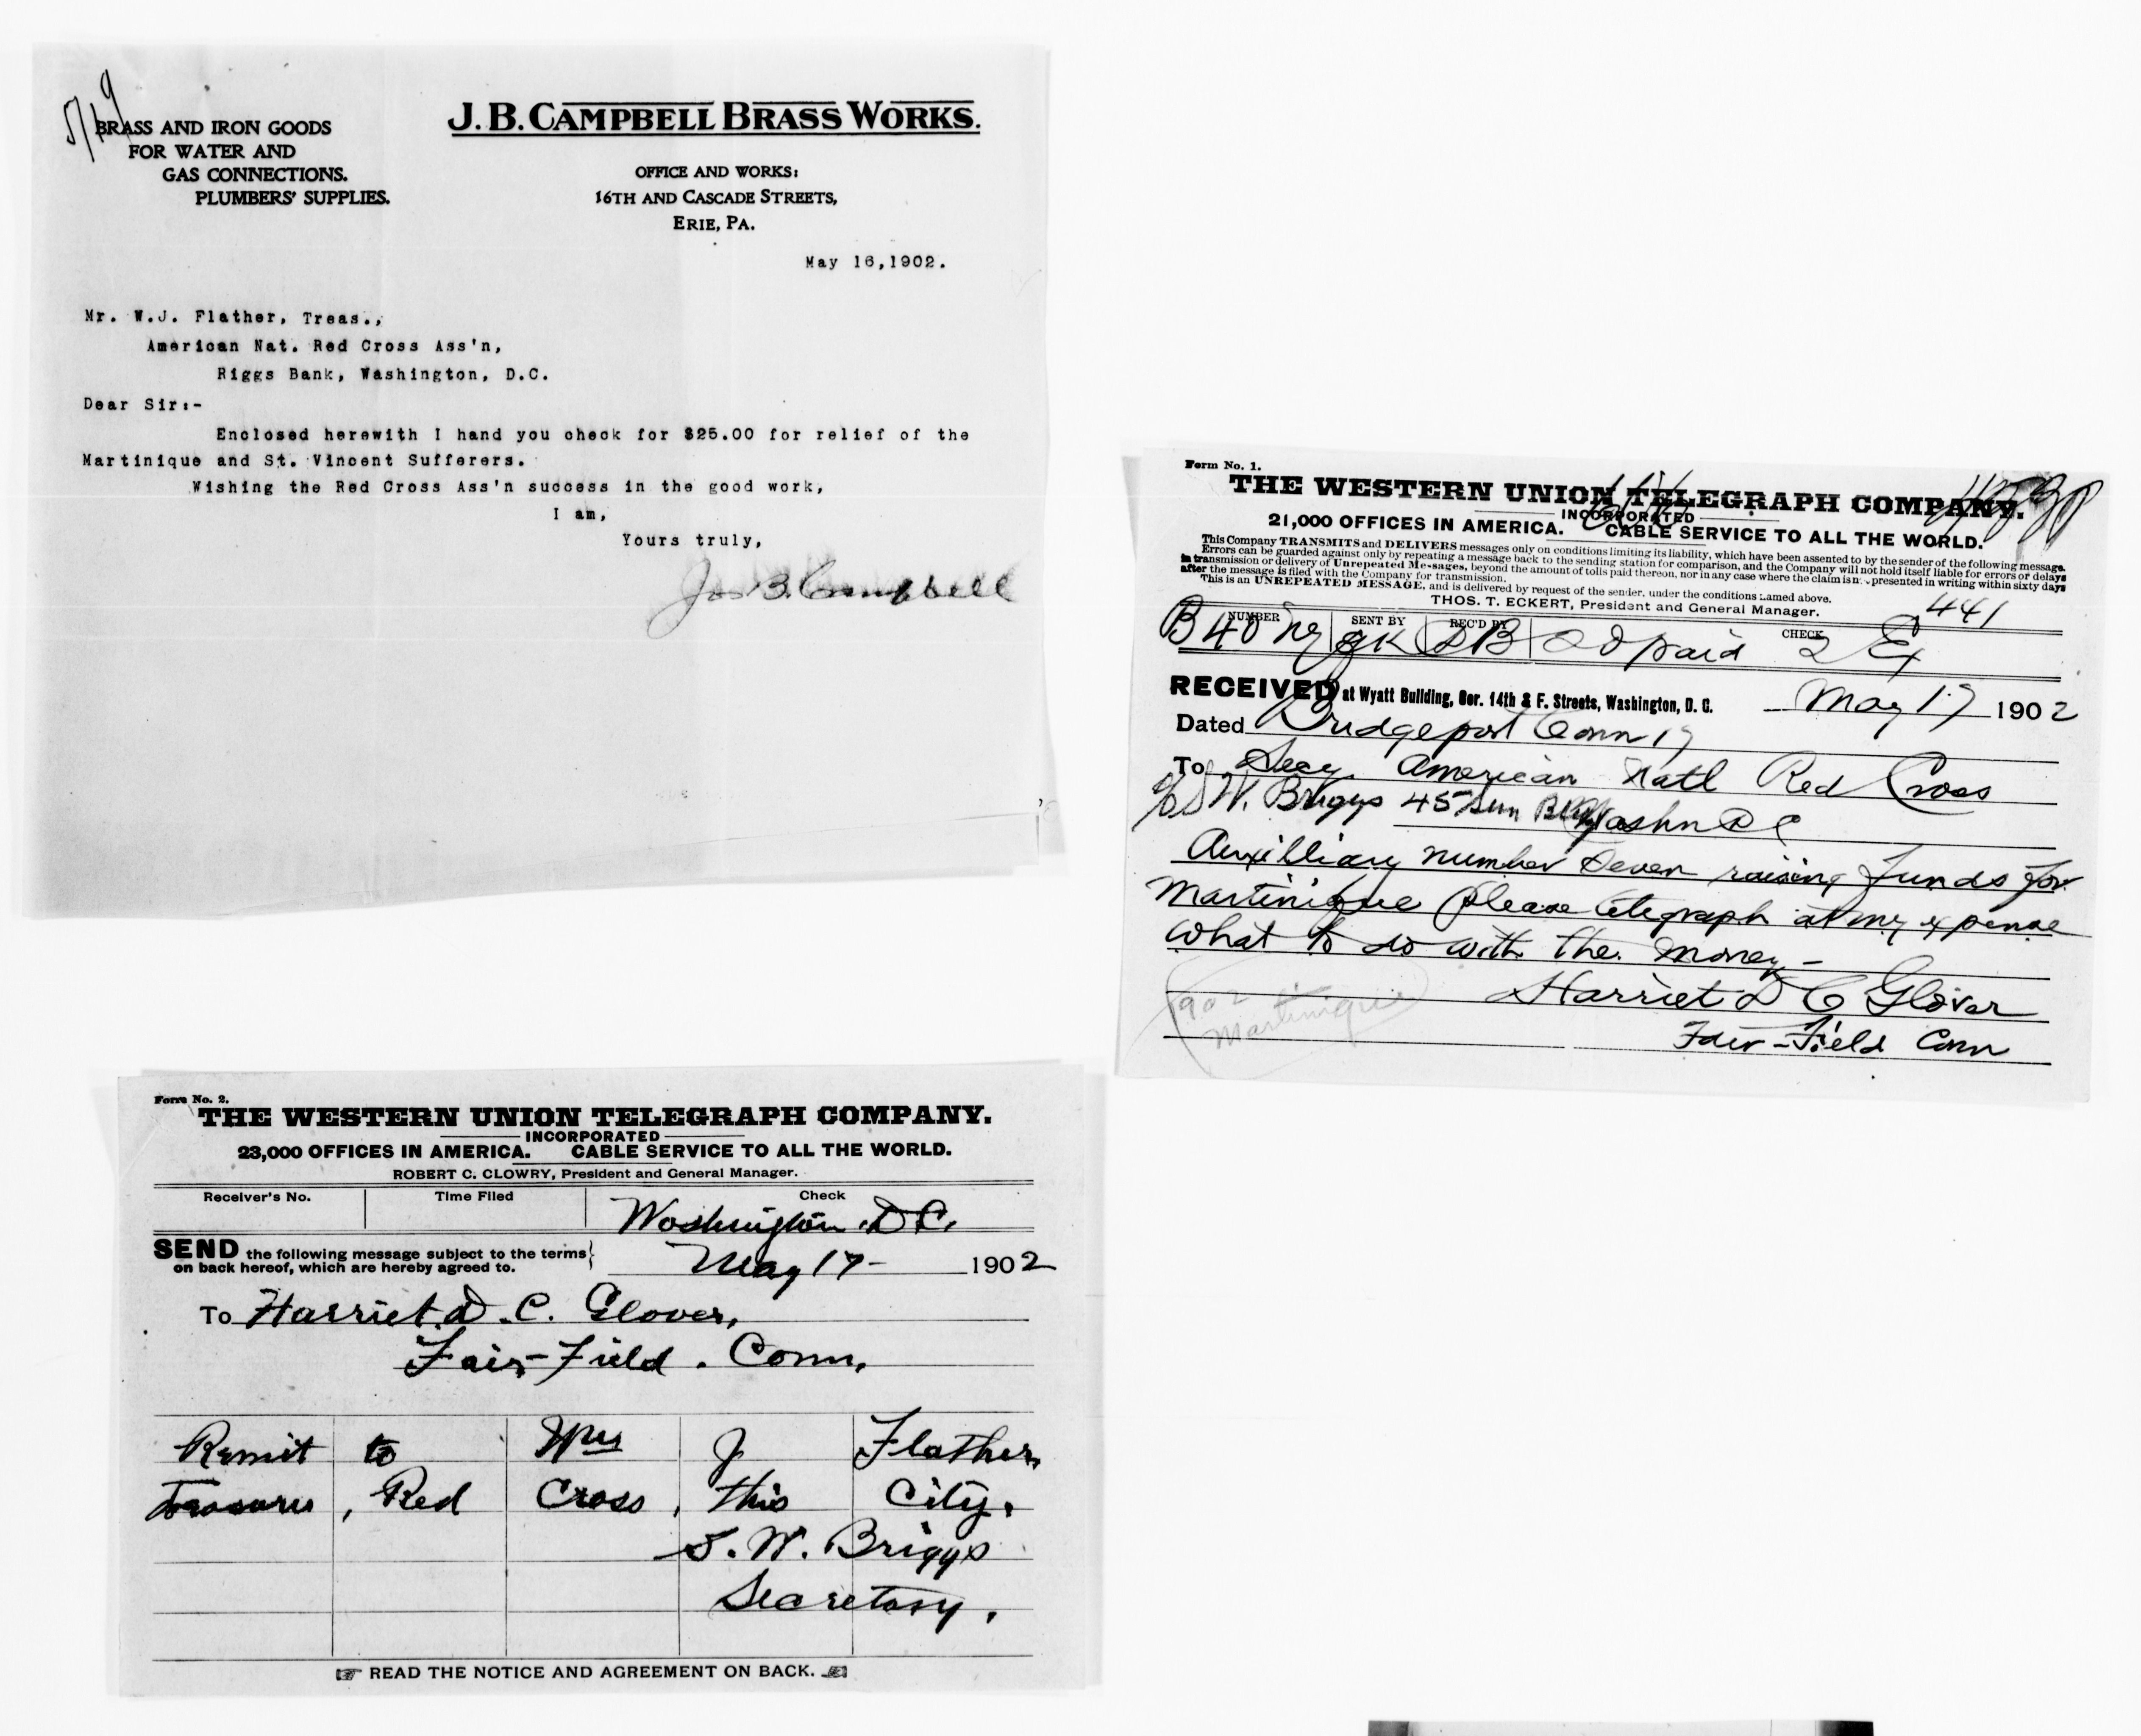 5/19
BRASS AND IRON GOODS
FOR WATER AND
GAS CONNECTIONS.
PLUMBERS' SUPPLIES.
J. B. CAMPBELL BRASS WORKS.
OFFICE AND WORKS:
16TH AND CASCADE STREETS,
ERIE, PA.
May 16,1902.
Mr. W.J. Flather, Treas.,
American Nat. Red Cross Ass'n,
Riggs Bank, Washington, D.C.
Dear Sir:-
Enclosed herewith I hand you check for $25.00 for relief of the
Martinique and St. Vincent Sufferers.
Wishing the Red Cross Ass'n success in the good work,
I am,
Yours truly,
Jas B. Campbell
Form No. 1.
THE WESTERN UNION TELEGRAPH COMPANY.
INCORPORATED
21,000 OFFICES IN AMERICA. CABLE SERVICE TO ALL THE WORLD.
This Company TRANSMITS and DELIVERS messages only on conditions limiting its liability, which have been assented to by the sender of the following message.
Errors can be guarded against only by repeating a message back to the sending station for comparison, and the Company will not hold itself liable for errors or delays
in transmission or delivery of Unrepeated Messages, beyond the amount of tolls paid thereon, nor in any case where the claim is not presented in writing within sixty days
after the message is filed with the Company for transmission.
This is an UNREPEATED MESSAGE, and is delivered by request of the sender, under the conditions named above.
THOS. T. ECKERT, President and General Manager.
441
NUMBER SENT BY REC'D BY CHECK
B 40 Ny GK DB 20 paid 2 Ex
RECEIVED at Wyatt Building, Cor. 14th & F. Streets, Washington, D. C. May 17 1902
Dated Bridgeport Conn 17
To Secy American Natl Red Cross
c/o S W. Briggs 45 Sun Bldg Washn D C
Auxilliary number Seven raising funds for
Martinique please telegraph at my expense
what to do with the money -
Harriet D C Glover
Fair-Field Conn
1902
Martinique
Form No. 2.
THE WESTERN UNION TELEGRAPH COMPANY.
INCORPORATED
23,000 OFFICES IN AMERICA. CABLE SERVICE TO ALL THE WORLD.
ROBERT C. CLOWRY, President and General Manager.
Receiver's No. Time Filed Check
Washington, D.C.
SEND the following message subject to the terms
on back hereof, which are hereby agreed to.
May 17- 1902
To Harriet D. C. Glover,
Fair-Field. Conn,
Remit to Wm J Flather,
Treasurer, Red Cross, this City.
S. W. Briggs
Secretary.
READ THE NOTICE AND AGREEMENT ON BACK.